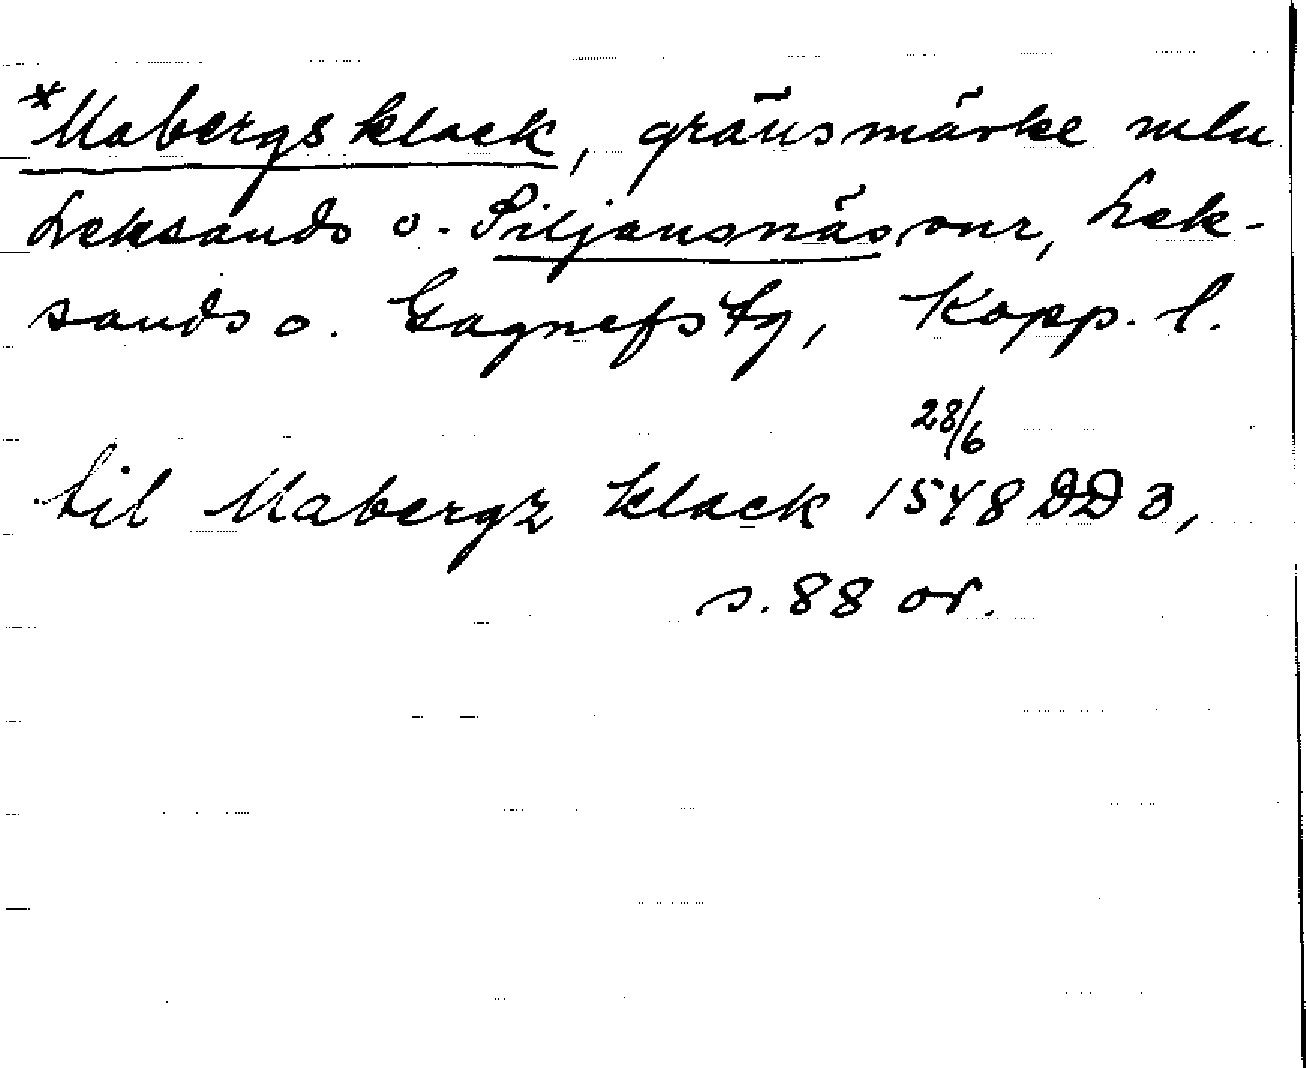 *Mabergsklack, gränsmärke mln
Leksands o. Siljansnäs snr, Lek-
sands o. Gagnefs tg, Kopp. l.
til Mabergz klack 28/6 1548 DD 3,
s. 88 or.